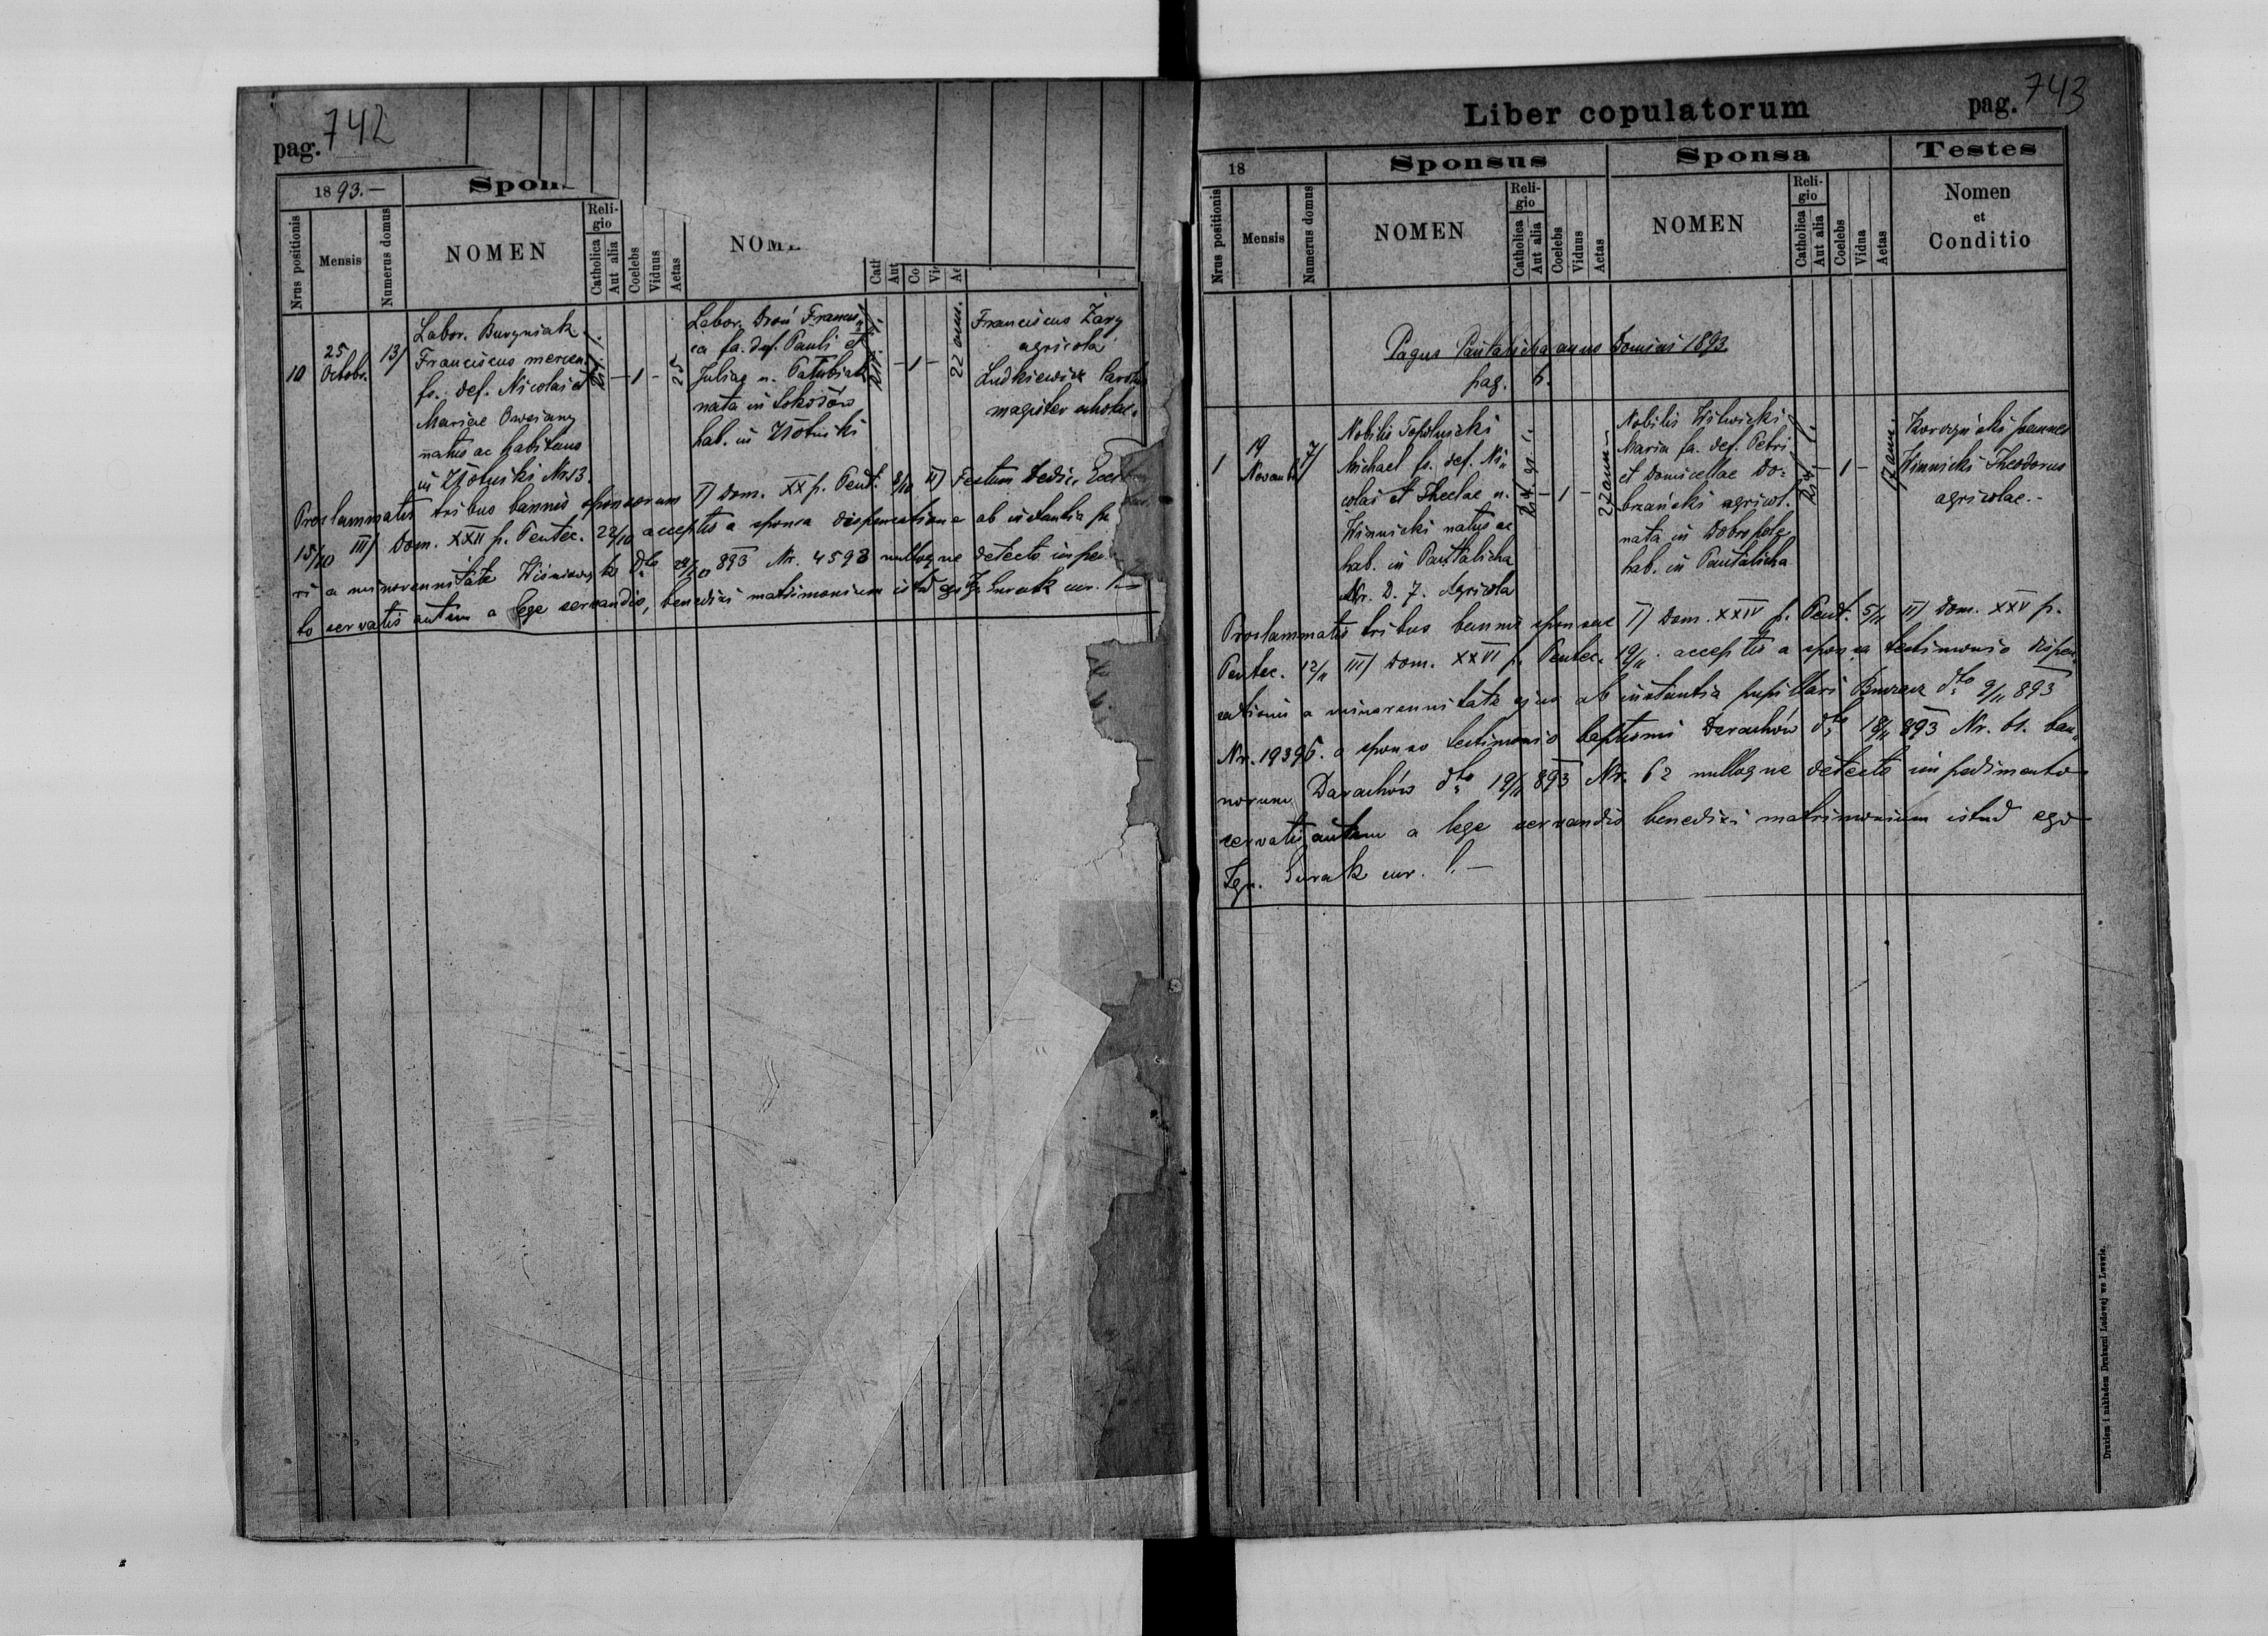 pag. 742
1893.—
Spon
Nrus positionis
Mensis
Numerus domus
NOMEN
Religio
Catholica
Aut alia
Coelebs
Viduus
Aetas
NOM
Cath
Aut
Co
Vi
Ae
10
25 Octobr.
13/
Labor. Burzyniak
Franciscus mercen.
fs. def. Nicolai et
Mariae
natus ac habitans
in Złotniki Nr. 13.
— 1 —
25
Labor. Droń Francis
ca fa. def. Pauli et
Juliae n.
nata in Sokołów
hab. in Złotniki
— 1 —
22 ann.
Franciscus Żary
agricola
Ludkiewicz Carolus
magister scholae.
Proclammatis tribus bannis sponsorum I) Dom. XX p. Pent. 8/10 II) Festum Dedic. Eccl
15/10 III) Dom. XXII p. Pentec. 22/10 acceptis a sponsa dispensatione ab instantia pu
ri a minorennitate dto 893 Nr. 4593 nulloque detecto impe
to servatis autem a lege servandis, benedixi matrimonium istud ego Ign. Surak cur. l. —
Liber copulatorum
pag. 743
18
Sponsus
Sponsa
Testes
Nrus positionis
Mensis
Numerus domus
NOMEN
Religio
Catholica
Aut alia
Coelebs
Viduus
Aetas
NOMEN
Religio
Catholica
Aut alia
Coelebs
Vidua
Aetas
Nomen
et
Conditio
Pagus Pantalicha anno Domini 1893.
pag. 6.
1
19 Novemb.
7/
Nobilis Topolnicki
Michael fs. def. Ni-
colai et Theclae n.
Winnicki natus ac
hab. in Pantalicha
Nr. D. 7. Agricola
— 1 —
27 ann.
Nobilis Witwicki
Maria fa. def. Petri
et Domicellae Do-
brzański agricol.
nata in Dobropole
hab. in Pantalicha
— 1 —
17 ann.
Joannes
Winnicki Theodorus
agricolae.—
Proclammatis tribus bannis sponsae I) Dom. XXIV p. Pent. 5/11 II) Dom. XXV p.
Pentec. 12/11 III) Dom. XXVI p. Pentec. 19/11. acceptis a sponsa testimonio dispen-
sationis a minorennitate ejus ab instantia pupillari dto 9/11 893
Nr. 19396. a sponso testimonio baptismi Darachów dto 18/11 893 Nr. 61. ban-
norum Darachów dto 19/11 893 Nr. 62 nulloque detecto impedimento
servatis autem a lege servandis benedixi matrimonium istud ego
Ign. Surak cur. l. —
Drukiem i nakładem Drukarni Ludowej we Lwowie.